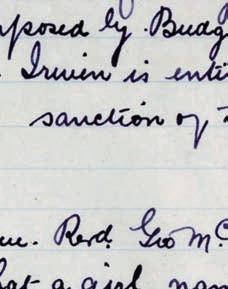 posed by Budg
Irwin is enti
sanction of
Revd. Geo Mc
hat a girl nam